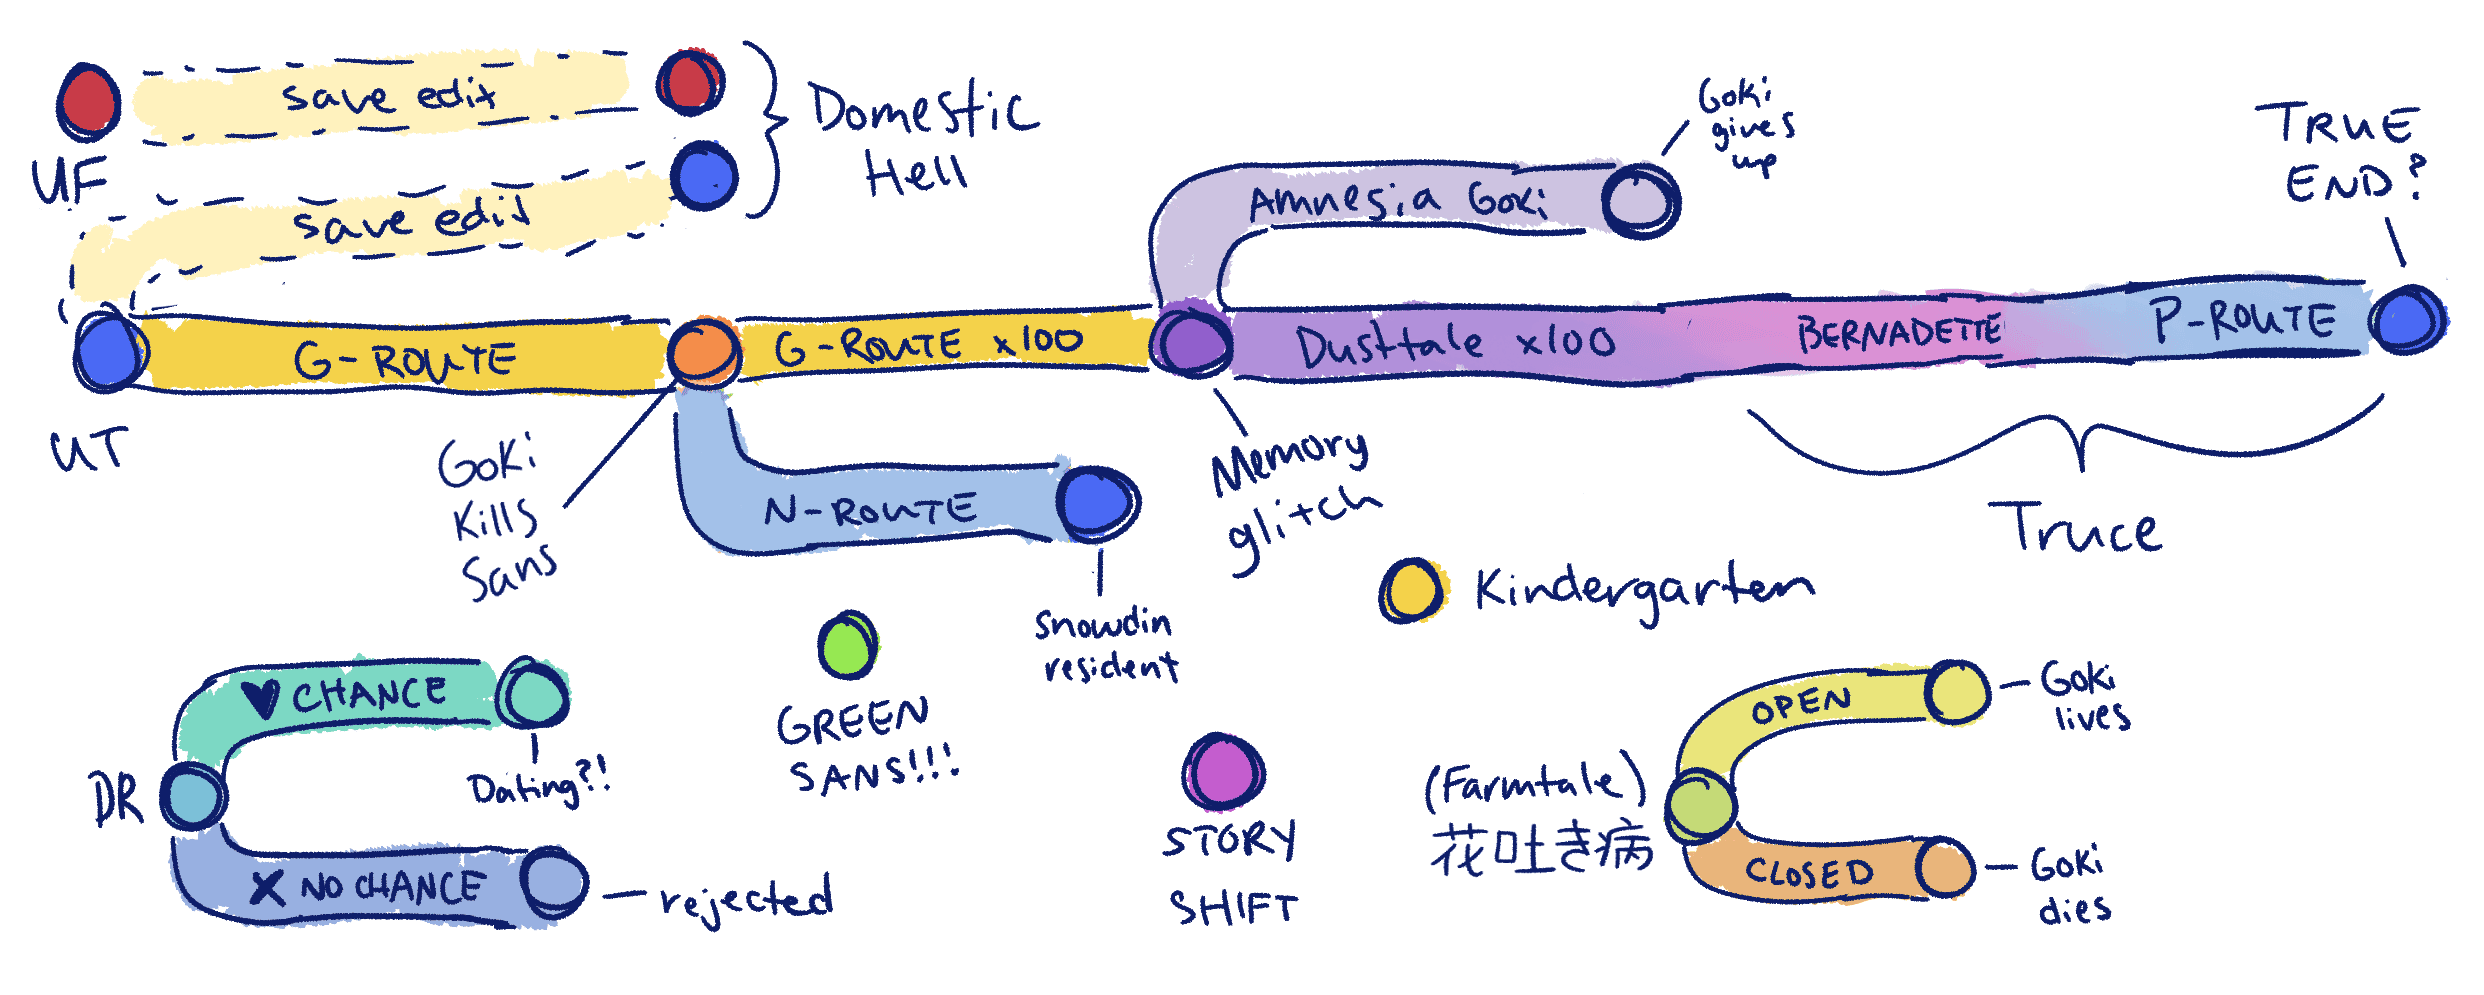 UF
save edit
save edit
Domestic
Hell
UT
G-ROUTE
Goki
Kills
Sans
G-ROUTE x100
N-ROUTE
Snowdin
resident
Memory
glitch
Amnesia Goki
Goki
gives
up
Dusttale x100
BERNADETTE
P-ROUTE
TRUE
END?
Truce
Kindergarten
GREEN
SANS!!!
DR
♥ CHANCE
Dating?!
X NO CHANCE
rejected
STORY
SHIFT
(Farmtale)
花吐き病
OPEN
Goki
lives
CLOSED
Goki
dies